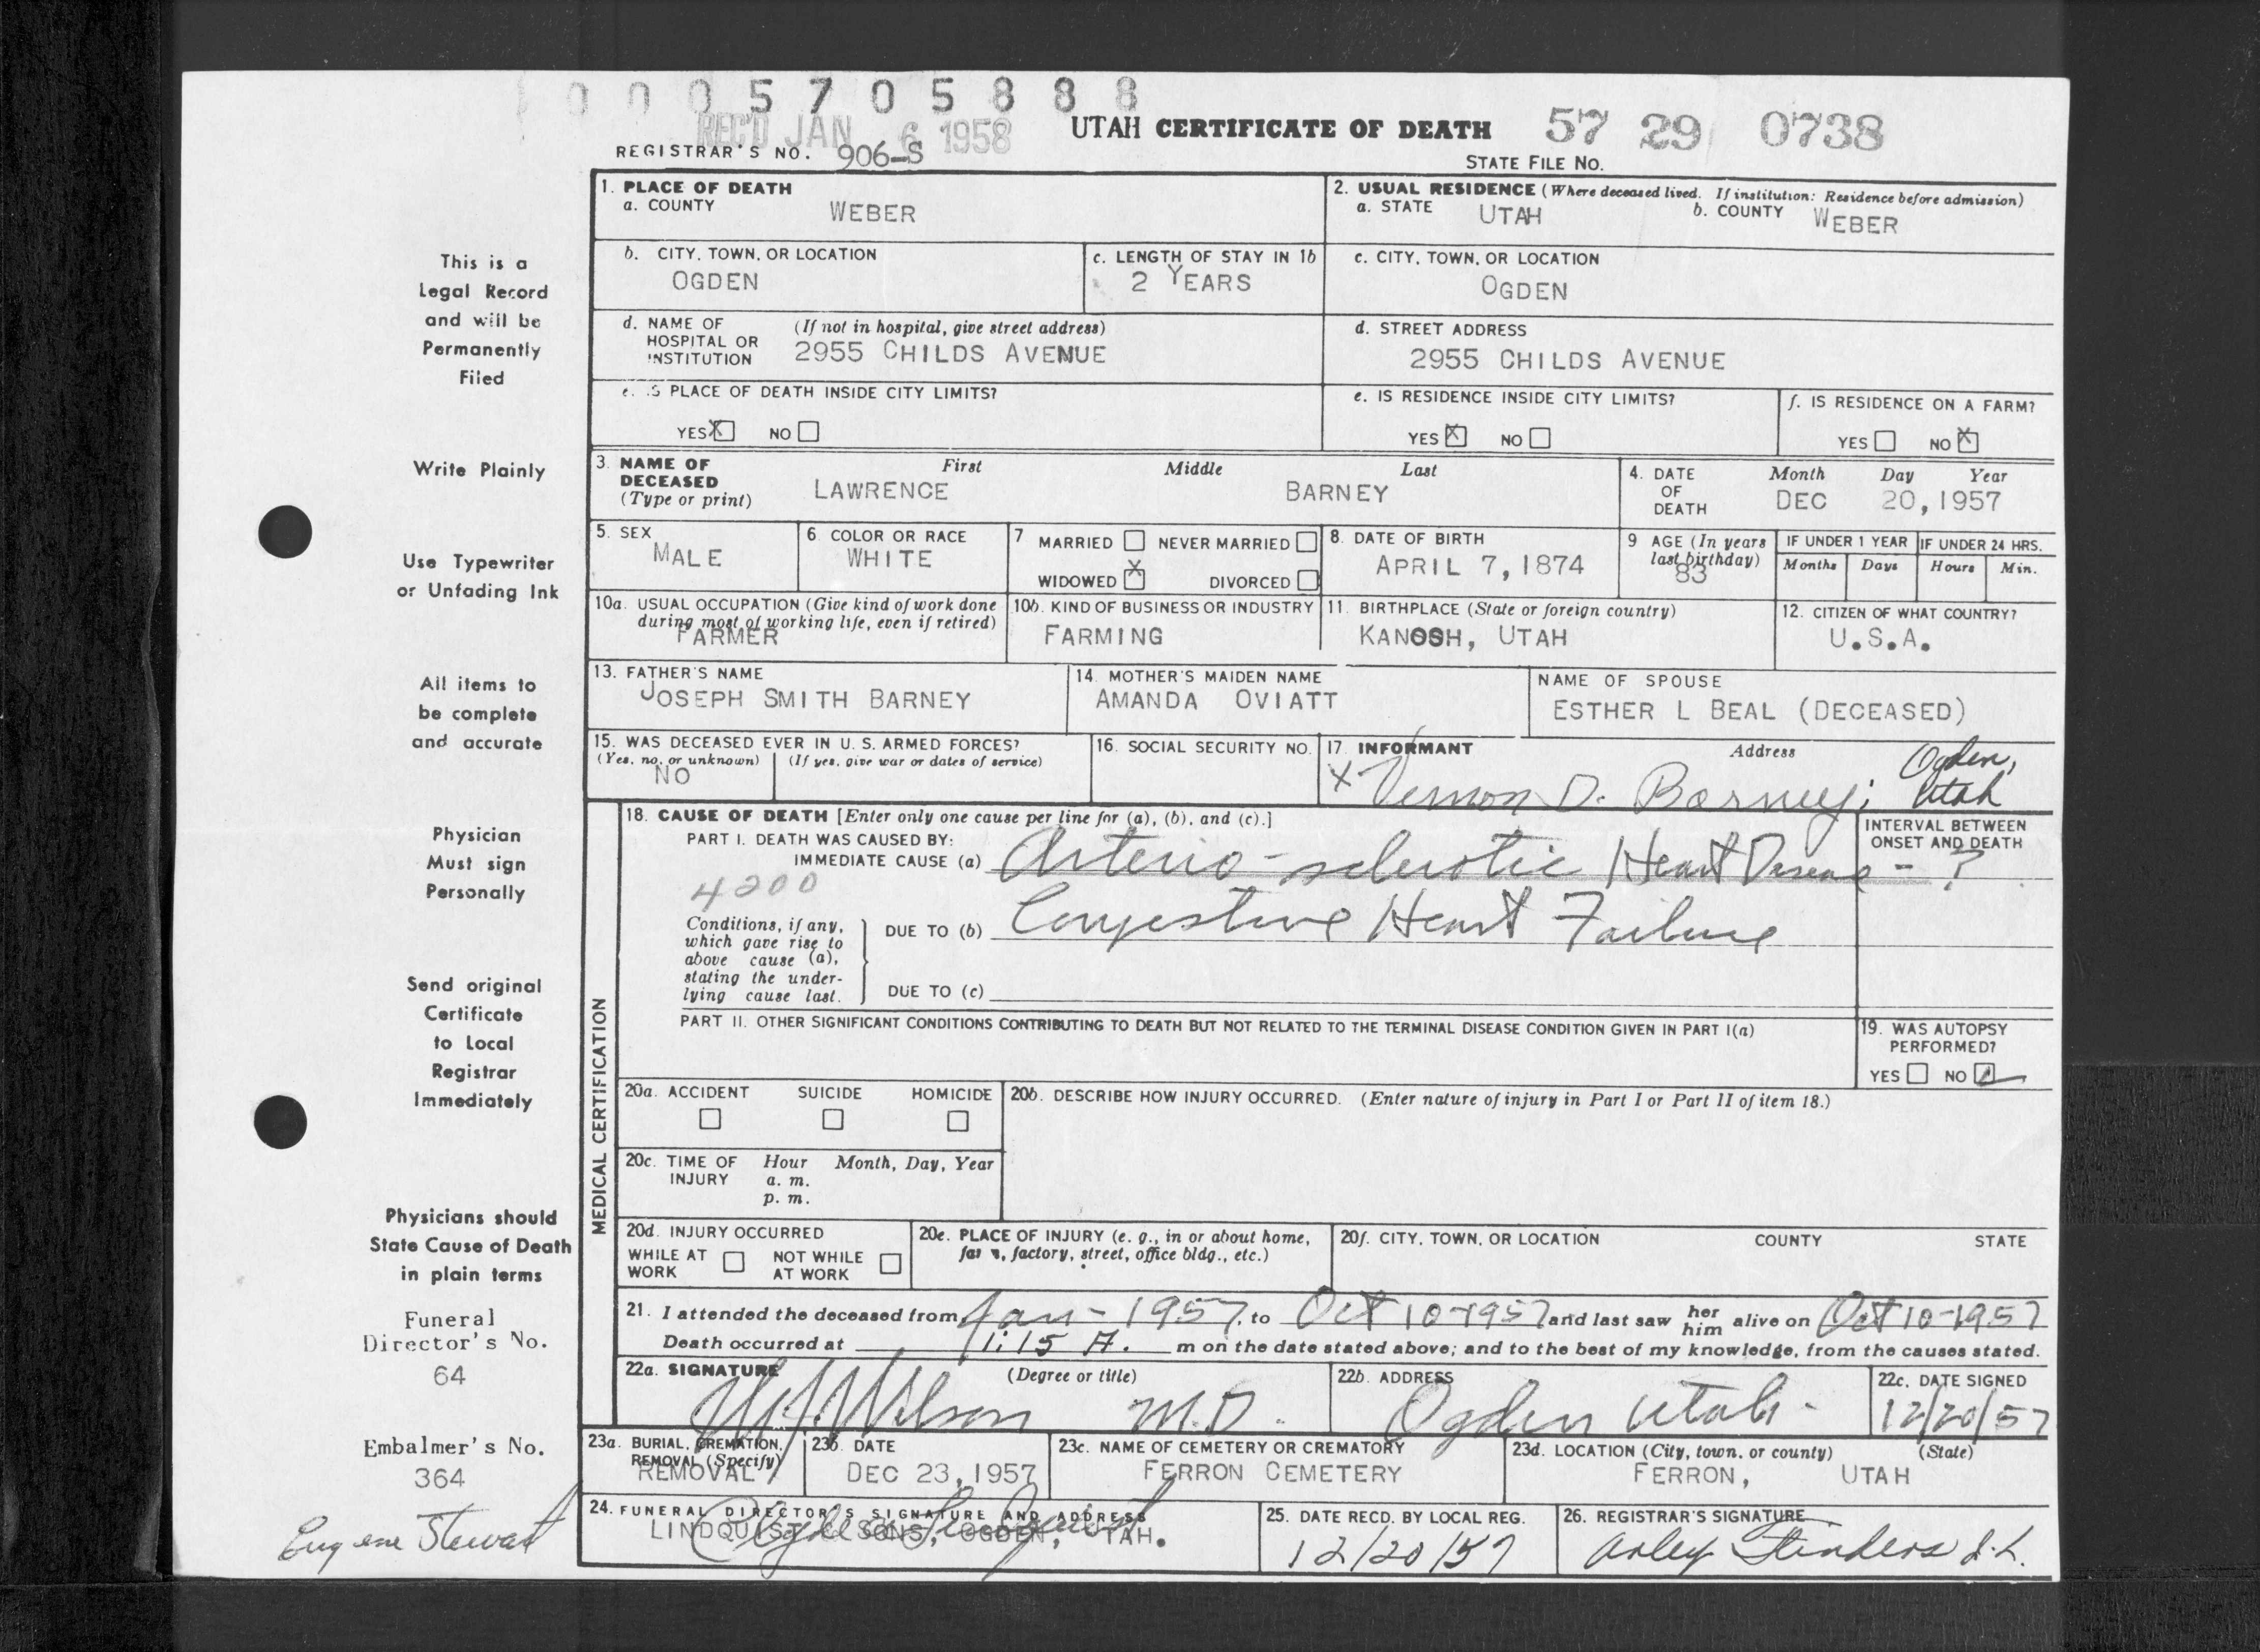 0 0 0 5 7 0 5 8 8 8
REC'D JAN 6 1958
UTAH CERTIFICATE OF DEATH
57 29 0738
REGISTRAR'S NO. 906-S
STATE FILE NO.
1. PLACE OF DEATH
a. COUNTY WEBER
2. USUAL RESIDENCE (Where deceased lived. If institution: Residence before admission)
a. STATE UTAH b. COUNTY WEBER
b. CITY, TOWN, OR LOCATION
OGDEN
c. LENGTH OF STAY IN 1b
2 YEARS
c. CITY, TOWN, OR LOCATION
OGDEN
d. NAME OF HOSPITAL OR INSTITUTION (If not in hospital, give street address)
2955 CHILDS AVENUE
d. STREET ADDRESS
2955 CHILDS AVENUE
e. IS PLACE OF DEATH INSIDE CITY LIMITS?
YES X NO
e. IS RESIDENCE INSIDE CITY LIMITS?
YES X NO
f. IS RESIDENCE ON A FARM?
YES NO X
3. NAME OF DECEASED (Type or print)
First Middle Last
LAWRENCE BARNEY
4. DATE OF DEATH Month Day Year
DEC 20, 1957
5. SEX
MALE
6 COLOR OR RACE
WHITE
7 MARRIED NEVER MARRIED
WIDOWED X DIVORCED
8. DATE OF BIRTH
APRIL 7, 1874
9 AGE (In years last birthday)
83
IF UNDER 1 YEAR
Months Days
IF UNDER 24 HRS.
Hours Min.
10a. USUAL OCCUPATION (Give kind of work done during most of working life, even if retired)
FARMER
10b. KIND OF BUSINESS OR INDUSTRY
FARMING
11. BIRTHPLACE (State or foreign country)
KANOSH, UTAH
12. CITIZEN OF WHAT COUNTRY?
U.S.A.
13. FATHER'S NAME
JOSEPH SMITH BARNEY
14. MOTHER'S MAIDEN NAME
AMANDA OVIATT
NAME OF SPOUSE
ESTHER L BEAL (DECEASED)
15. WAS DECEASED EVER IN U. S. ARMED FORCES?
(Yes, no, or unknown) (If yes, give war or dates of service)
NO
16. SOCIAL SECURITY NO.
17. INFORMANT Address
X Vernon D. Barney; Ogden, Utah
MEDICAL CERTIFICATION
18. CAUSE OF DEATH [Enter only one cause per line for (a), (b), and (c).]
PART I. DEATH WAS CAUSED BY:
IMMEDIATE CAUSE (a) Arterio-sclerotic Heart Disease - ?
INTERVAL BETWEEN ONSET AND DEATH
4200
Conditions, if any, which gave rise to above cause (a), stating the underlying cause last.
DUE TO (b) Congestive Heart Failure
DUE TO (c)
PART II. OTHER SIGNIFICANT CONDITIONS CONTRIBUTING TO DEATH BUT NOT RELATED TO THE TERMINAL DISEASE CONDITION GIVEN IN PART I(a)
19. WAS AUTOPSY PERFORMED?
YES NO
20a. ACCIDENT SUICIDE HOMICIDE
20b. DESCRIBE HOW INJURY OCCURRED. (Enter nature of injury in Part I or Part II of item 18.)
20c. TIME OF INJURY Hour Month, Day, Year
a. m.
p. m.
20d. INJURY OCCURRED
WHILE AT WORK NOT WHILE AT WORK
20e. PLACE OF INJURY (e. g., in or about home, farm, factory, street, office bldg., etc.)
20f. CITY, TOWN, OR LOCATION COUNTY STATE
21. I attended the deceased from Jan - 1957, to Oct 10-1957 and last saw her him alive on Oct 10-1957
Death occurred at 1:15 A. m on the date stated above; and to the best of my knowledge, from the causes stated.
22a. SIGNATURE (Degree or title)
Wilson M.D.
22b. ADDRESS
Ogden Utah -
22c. DATE SIGNED
12/20/57
23a. BURIAL, CREMATION, REMOVAL (Specify)
REMOVAL
23b. DATE
DEC 23, 1957
23c. NAME OF CEMETERY OR CREMATORY
FERRON CEMETERY
23d. LOCATION (City, town, or county) (State)
FERRON, UTAH
24. FUNERAL DIRECTOR'S SIGNATURE AND ADDRESS
LINDQUIST & SONS, OGDEN, UTAH.
25. DATE RECD. BY LOCAL REG.
12/20/57
26. REGISTRAR'S SIGNATURE
This is a
Legal Record
and will be
Permanently
Filed
Write Plainly
Use Typewriter
or Unfading Ink
All items to
be complete
and accurate
Physician
Must sign
Personally
Send original
Certificate
to Local
Registrar
Immediately
Physicians should
State Cause of Death
in plain terms
Funeral
Director's No.
64
Embalmer's No.
364
Eugene Stewart